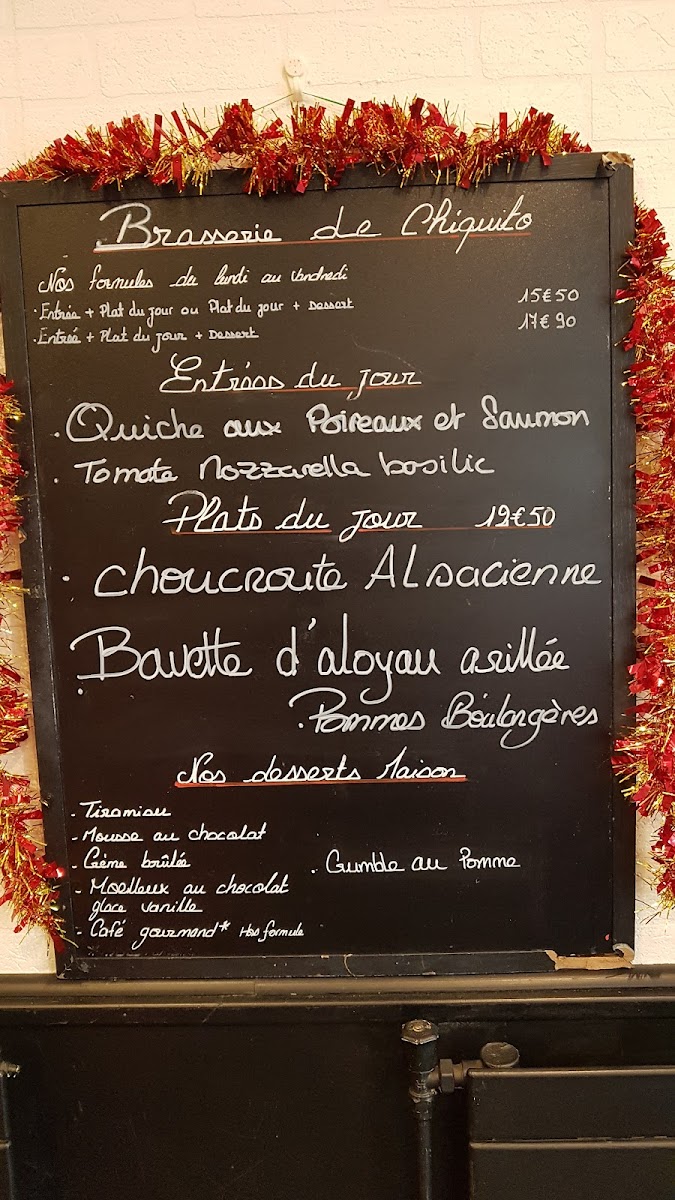 Brasserie de Chiquito
Nos formules du lundi au vendredi
· Entrée + Plat du jour ou Plat du jour + Dessert 15€50
· Entrée + Plat du jour + Dessert 17€90
Entrées du jour
· Quiche aux Poireaux et Saumon
· Tomate Mozzarella basilic
Plats du jour 12€50
· choucroute Alsacienne
· Bavette d'aloyau grillée
· Pommes Boulangères
Nos desserts Maison
- Tiramisu
- Mousse au chocolat
- Crème brûlée
· Crumble au Pomme
- Moelleux au chocolat
glace vanille
- Café gourmand* Hos formule